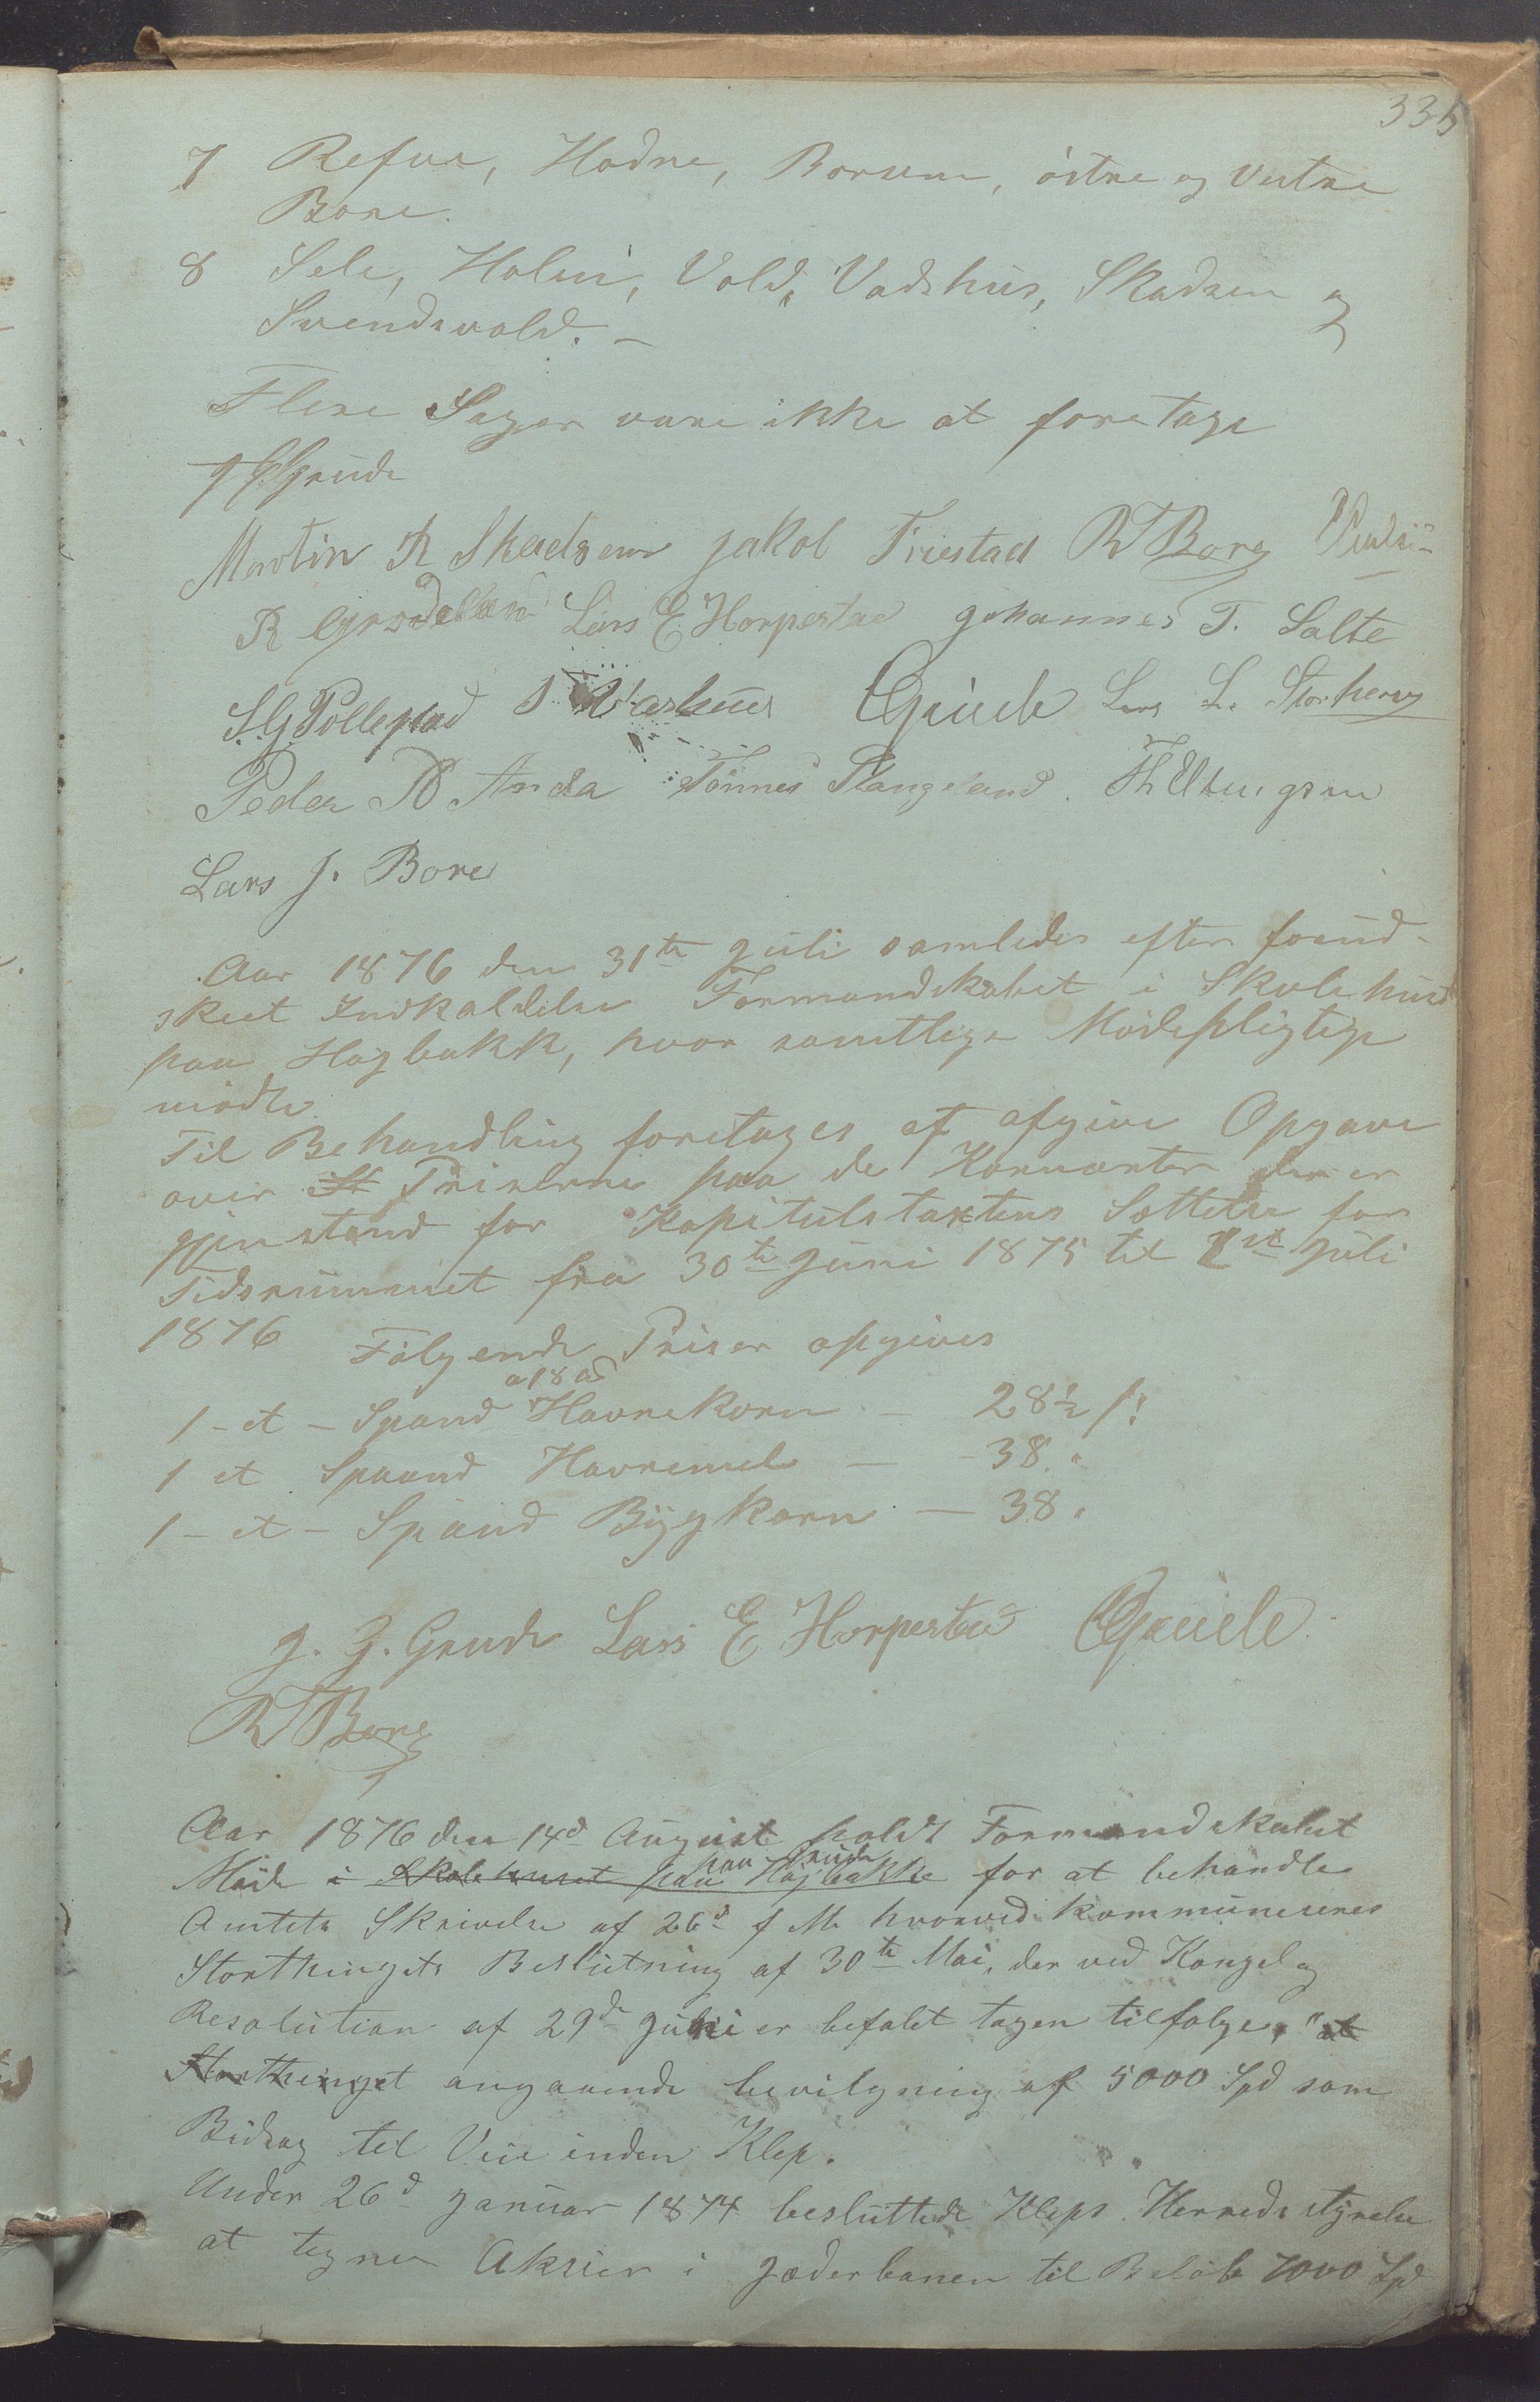 335
7 Refve, Hodne, Borsum, östre og Vestre
Bore.
8 Sele, Holen, Vold, Vadshus, Skadsem og
Svendsvold. –
Flere Sager vare ikke at foretage
J G Grude
Martin R Skadsem Jakob Friestad R T Bore
R Grødeland Lars E. Horpestad Johannes T. Salte
S. G. Pollestad Vashus O Grude Lars L. Storhoug
Peder A Anda Tönnes Stangeland. Th Ellingsen
Lars J. Bore
Aar 1876 den 31te Juli samledes efter forud-
skeet Indkaldelse Formandskabet i Skolehuset
paa Høgbakk, hvor samtlige Mödepligtige
mödte.
Til Behandling foretages at afgive Opgave
over St Priserne paa de Kornvarter der er
gjenstand for Kapitulstaxtens Sættelse for
Tidsrummet fra 30te Juni 1875 til 1st Juli
1876 Fölgende Priser opgives
a 18
1 – et – Spand Havrekorn – 28½ ſ:
1 et Spaand Havremel – - 38. "
1 – et – Spand Bygkorn – 38 "
J. G. Grude Lars E Horpestad O Grude
R T Bore
Aar 1876 den 14d August holdt Formandskabet
paa Grude
Möde i Skolehuset paa Højbakke for at behandle
Amtets Skrivelse af 26d f M. hvorved kommuniseres
Storthingets Beslutning af 30te Mai, der ved Kongelig
Resolution af 29de Juni er befalet tagen tilfølge, "at
Storthinget angaaende bevilgning af 5000 Spd som
Bidrag til Veie inden Klep.
Under 26d Januar 1874 besluttede Kleps Herredsstyrelse
at tegne Aksier i Jæderbanen til Beløb 7000 Spd